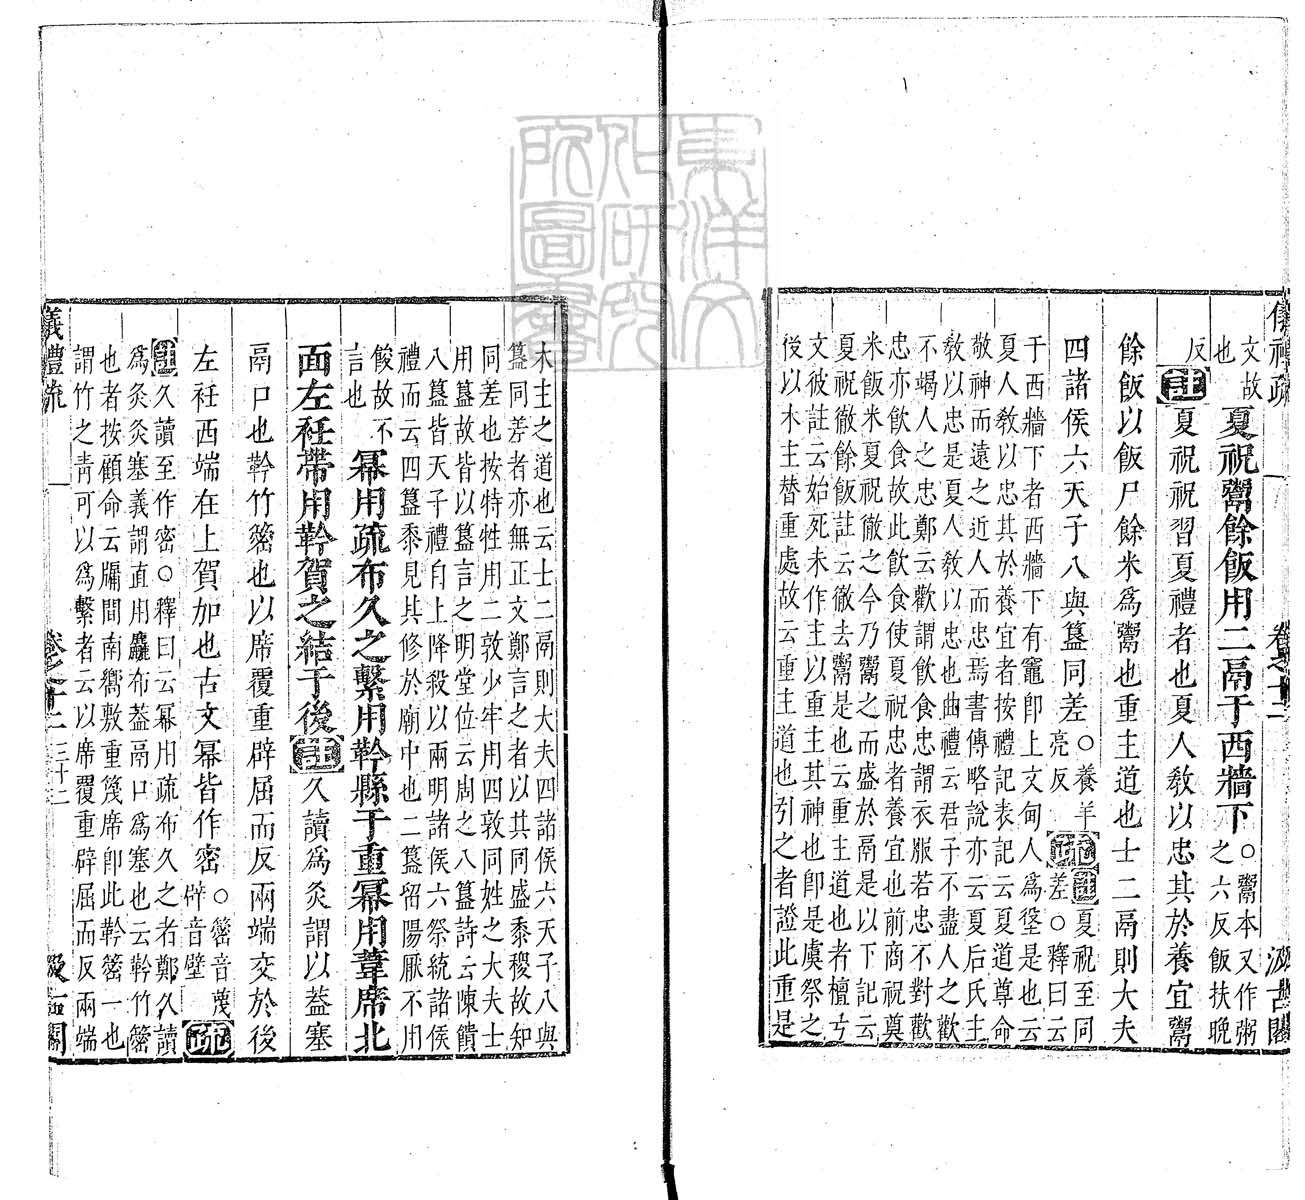 儀禮疏 卷之十二 汲古閣
文故
也
夏祝鬻餘飯用二鬲于西牆下
○鬻本又作粥
之六反飯扶晚
反
註
夏祝祝習夏禮者也夏人教以忠其於養宜鬻
餘飯以飯尸餘米爲鬻也重主道也士二鬲則大夫
四諸侯六天子八與簋同差
○養羊
亮反
疏
註夏祝至同
差○釋曰云
于西牆下者西牆下有竈卽上文甸人爲垼是也云
夏人教以忠其於養宜者按禮記表記云夏道尊命
敬神而遠之近人而忠焉書傳略說亦云夏后氏主
教以忠是夏人教以忠也曲禮云君子不盡人之歡
不竭人之忠鄭云歡謂飲食忠謂衣服若忠不對歡
忠亦飲食故此飲食使夏祝忠者養宜也前商祝奠
米飯米夏祝徹之今乃鬻之而盛於鬲是以下記云
夏祝徹餘飯註云徹去鬻是也云重主道也者檀弓
文彼註云始死未作主以重主其神也卽是虞祭之
後以木主替重處故云重主道也引之者證此重是
木主之道也云士二鬲則大夫四諸侯六天子八與
簋同差者亦無正文鄭言之者以其同盛黍稷故知
同差也按特牲用二敦少牢用四敦同姓之大夫士
用簋故皆以簋言之明堂位云周之八簋詩云陳饋
八簋皆天子禮自上降殺以兩明諸侯六祭統諸侯
禮而云四簋黍見其修於廟中也二簋留陽厭不用
餕故不
言也
冪用疏布久之繫用靲縣于重冪用葦席北
面左衽帶用靲賀之結于後
註
久讀爲灸謂以蓋塞
鬲口也靲竹䈼也以席覆重辟屈而反兩端交於後
左衽西端在上賀加也古文冪皆作密
○䈼音蔑
辟音壁
疏
註久讀至作密○釋曰云冪用疏布久之者鄭久讀
爲灸灸塞義謂直用麤布蓋鬲口爲塞也云靲竹䈼
也者按顧命云牖間南嚮敷重篾席卽此靲䈼一也
謂竹之青可以爲繫者云以席覆重辟屈而反兩端
儀禮疏 卷之十二 三十二 汲古閣
東洋文
化研究
所圖書